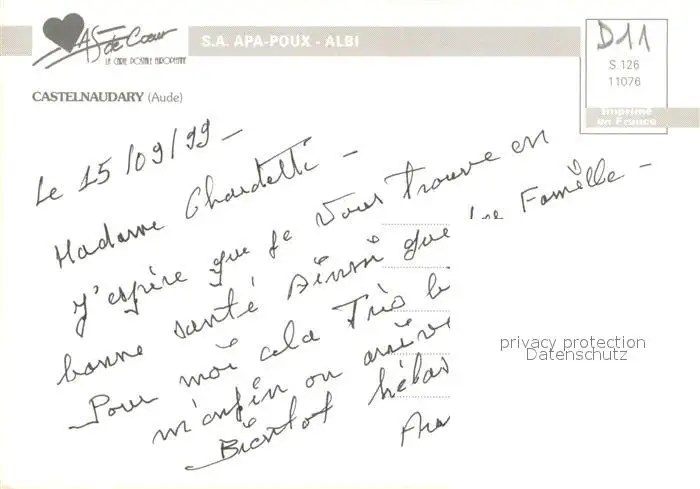 AS de Cœur
LA CARTE POSTALE EUROPEENNE
S.A. APA-POUX - ALBI
D11
S 126
11076
Imprimé
en France
CASTELNAUDARY (Aude)
Le 15/09/99 -
Madame Chardetti -
J'espère que je vous trouve en
bonne santé Ainsi que Famille -
Pour moi cela Très
m'enfin on arrive
Bientôt hélas
privacy protection
Datenschutz